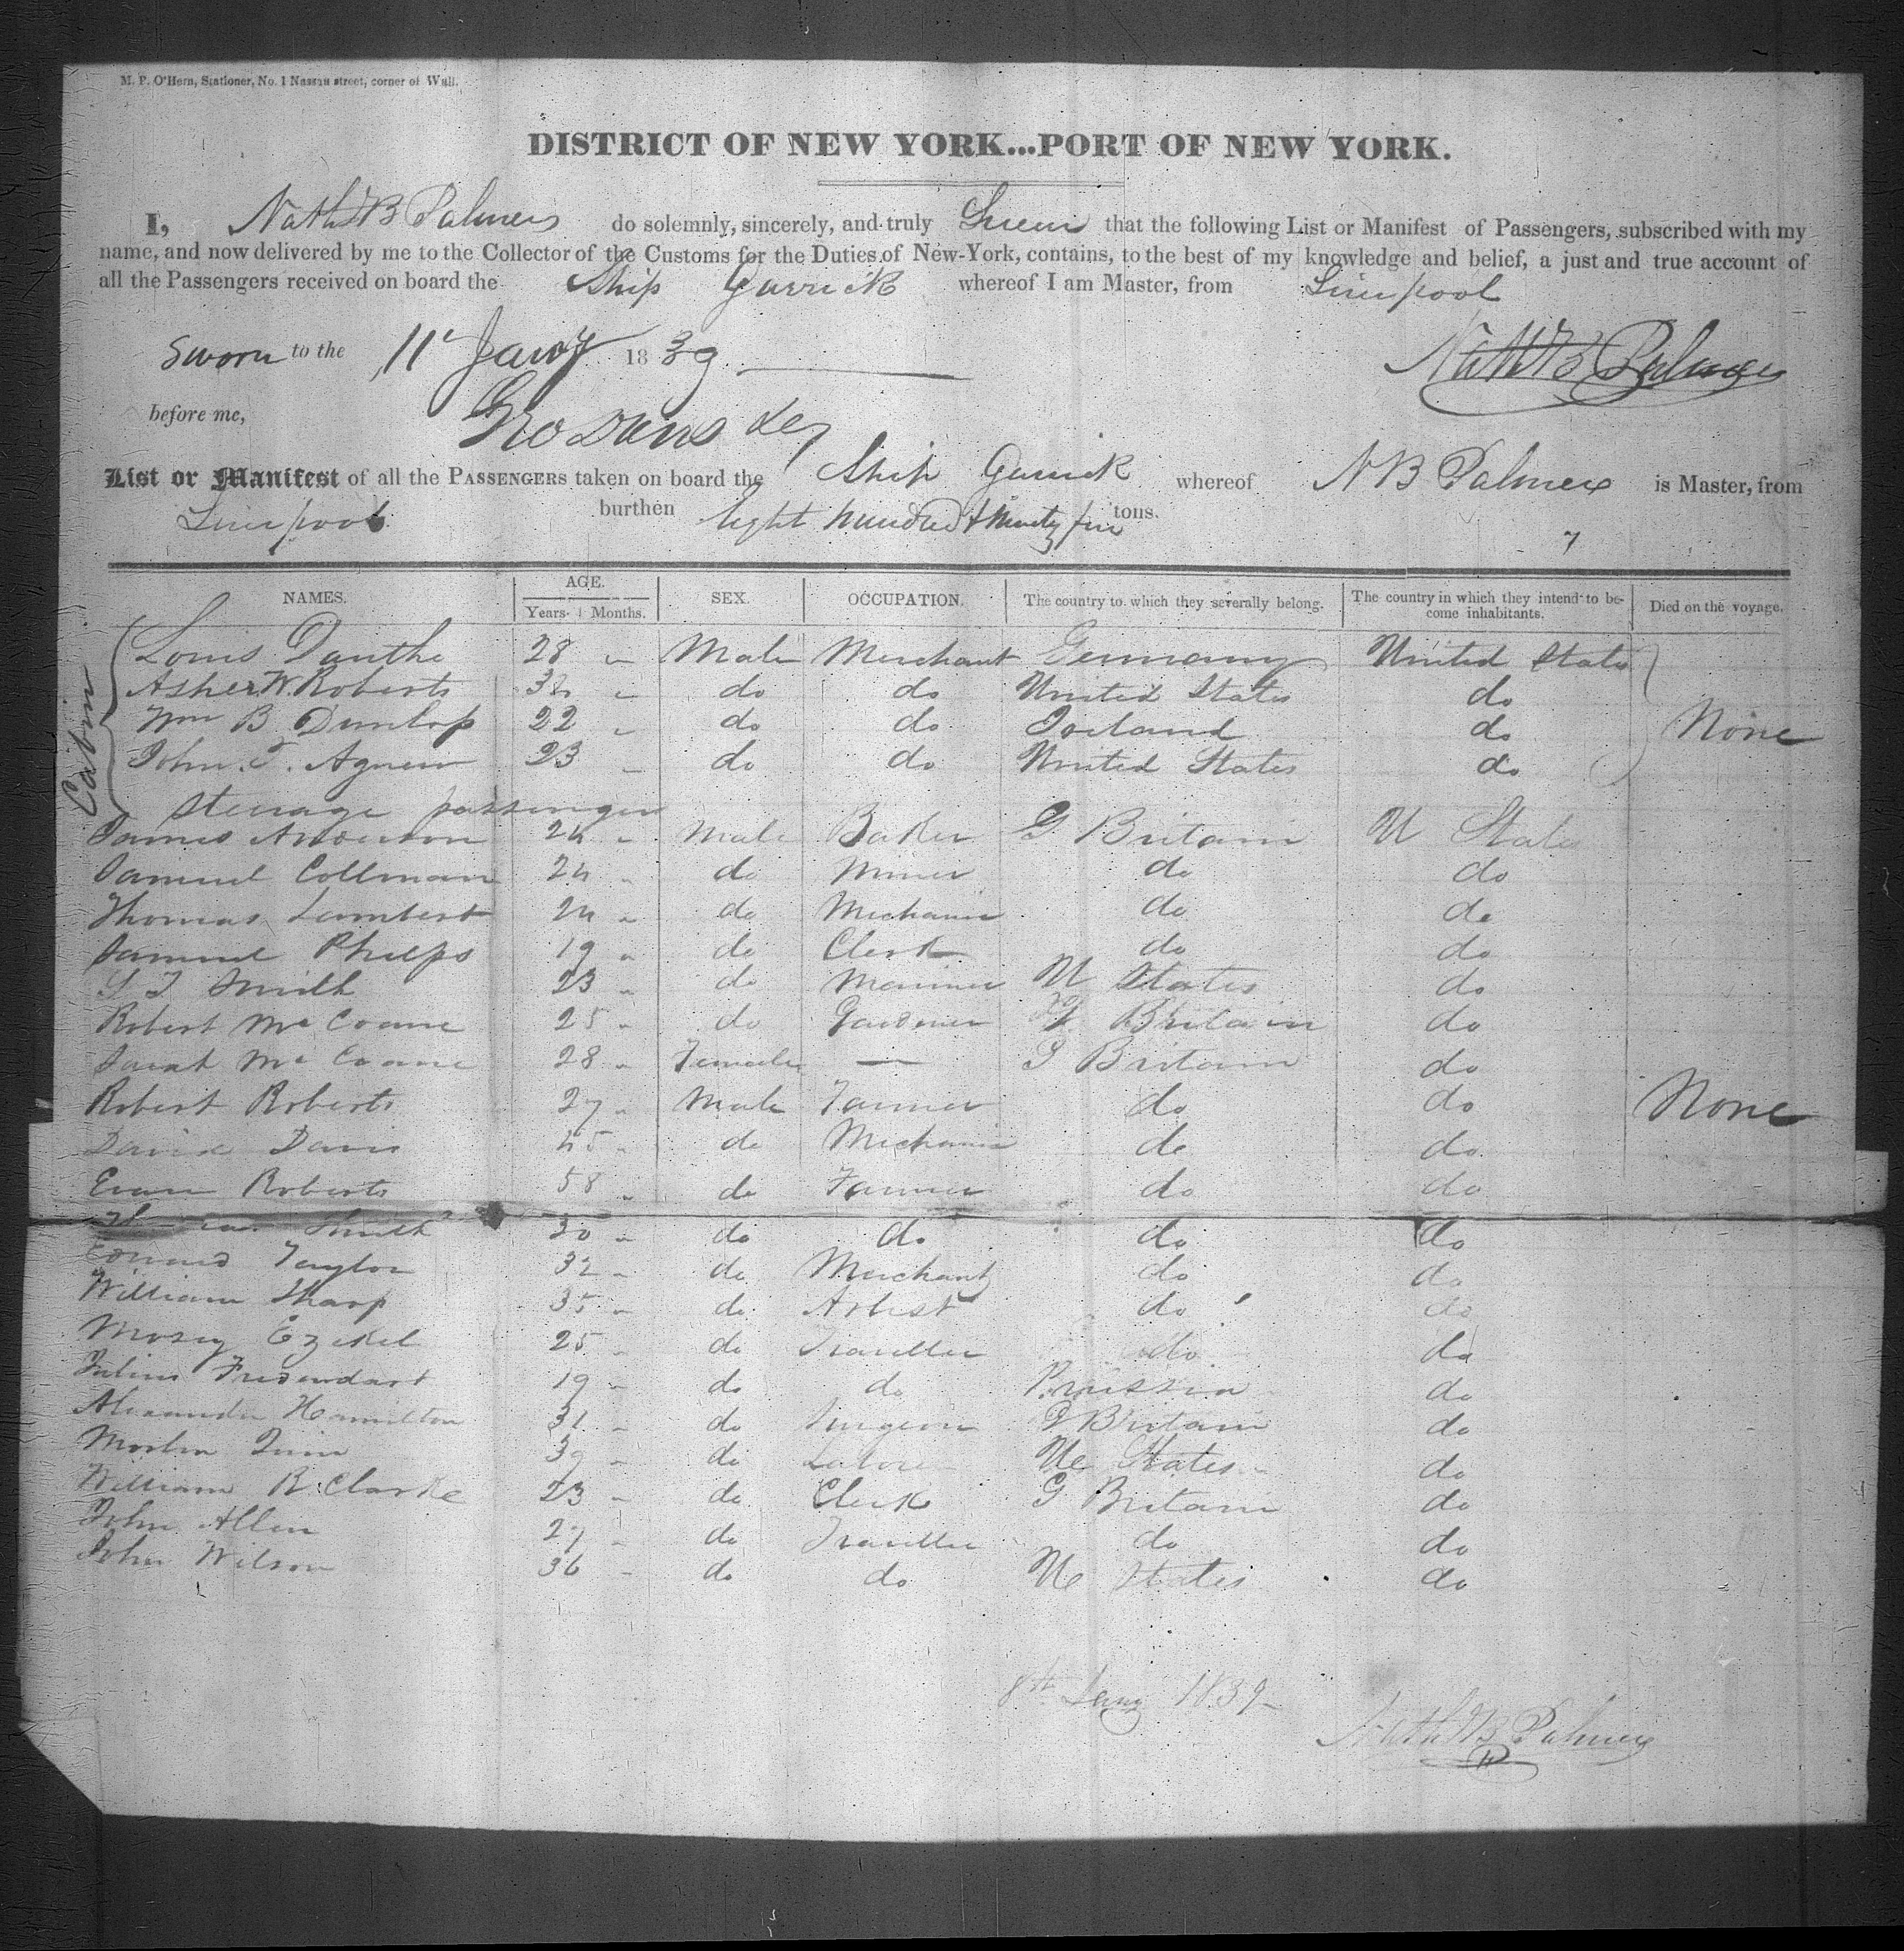 M. P. O'Hern, Stationer, No. 1 Nassau street, corner of Wall.
DISTRICT OF NEW YORK...PORT OF NEW YORK.
I, Nath'l B Palmer do solemnly, sincerely, and truly Swear that the following List or Manifest of Passengers, subscribed with my
name, and now delivered by me to the Collector of the Customs for the Duties of New-York, contains, to the best of my knowledge and belief, a just and true account of
all the Passengers received on board the Ship Garrick whereof I am Master, from Liverpool
Sworn to the 11 Jany 1839
Nath'l B Palmer
before me,
Geo Davis
List or Manifest of all the PASSENGERS taken on board the Ship Garrick whereof N B Palmer is Master, from
Liverpool burthen Eight hundred & Ninety five tons.
7
NAMES. AGE. Years. Months. SEX. OCCUPATION. The country to which they severally belong. The country in which they intend to become inhabitants. Died on the voyage.
Cabin
Louis Danthe 28 " Male Merchant Germany United States
Asher W. Roberts 32 " do do United States do
Wm B Dunlop 22 " do do Ireland do None
John T. Agnew 23 " do do United States do
Steerage passenger
James Anderson 24 " Male Baker G Britain U States
Samuel Collman 24 " do Miner do do
Thomas Lambert 24 " do Mechanic do do
Samuel Phelps 19 " do Clerk do do
S T Smith 23 " do Mariner U States do
Robert Mc Coane 25 " do Gardener G Britain do
Sarah Mc Coane 28 " Female — G Britain do
Robert Roberts 27 " Male Farmer do do None
David Davis 45 " do Mechanic do do
Evan Roberts 58 " do Farmer do do
Smith 30 " do do do do
Edward Taylor 32 " do Merchant do do
William Sharp 35 " do Artist do do
Mosey Ezekel 25 " do Traveller do do
Julius 19 " do do Prussia do
Alexander Hamilton 31 " do Surgeon G Britain do
Martin Quin 39 " do Laborer U States do
William R. Clarke 23 " do Clerk G Britain do
John Allen 27 " do Traveller do do
John Wilson 36 " do do U States do
8th Jany 1839
Nath'l B Palmer